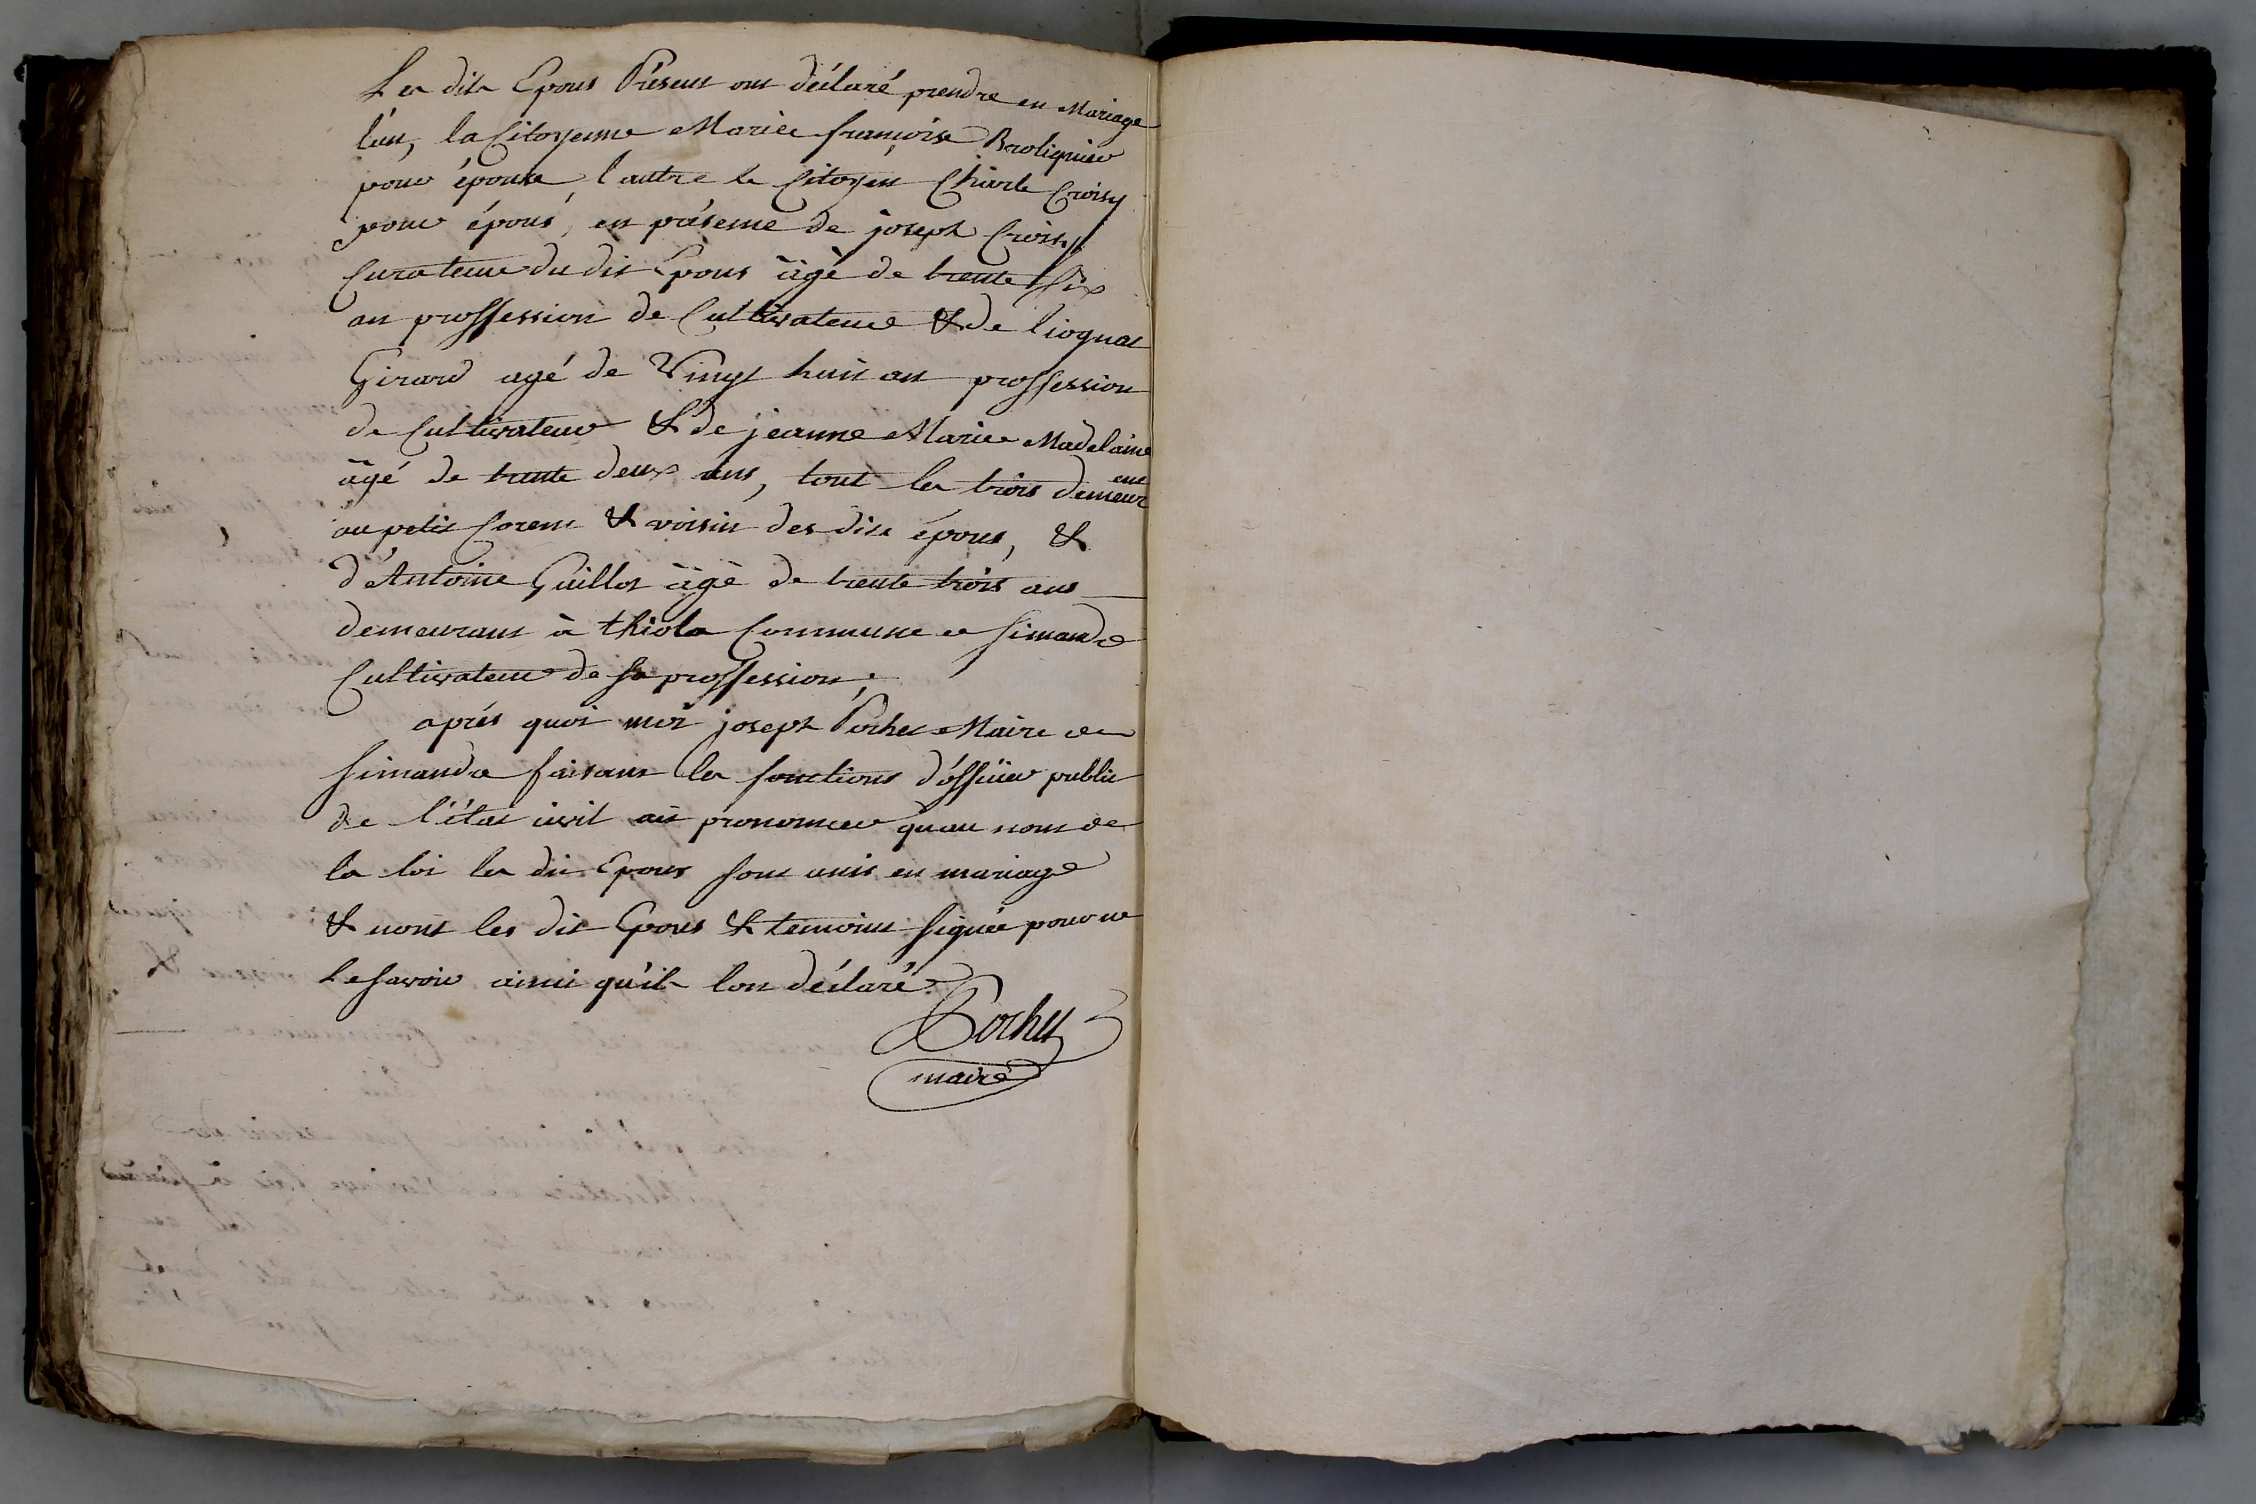 Les dits Epous Présent ont déclaré prendre en Mariage
l'ún, la Citoyenne Mariee françoise Broliquier
pour épouse, l'autre le Citoyen Charle Croisy
pour épous, en présence de joseph Croisy
Curateur du dit Epous âgé de trente Six
an proffession de Cultivateur & de
Girard agé de Vingt huit ans proffession
de Cultivateur & de jeanne Mariee Madelaine
âgé de trante deux ans, tout les trois demeur ent
au petit Corent & voisin des dits épous, &
d'Antoine Guillot âgé de trente trois ans
demeurant à thiola Commune de Simandre
Cultivateur de Sa proffession;
aprés quoi moi joseph Pochet Maire de
Simandre faisant les fonctions d'officier public
de l'état civil ait prononcer qu'au nom de
la loi les dit Epous sont unis en mariage
& nont les dit Epous & temoins Signée pour ne
le savoir ainsi qu'ils lon déclaré.
Pochet
maire